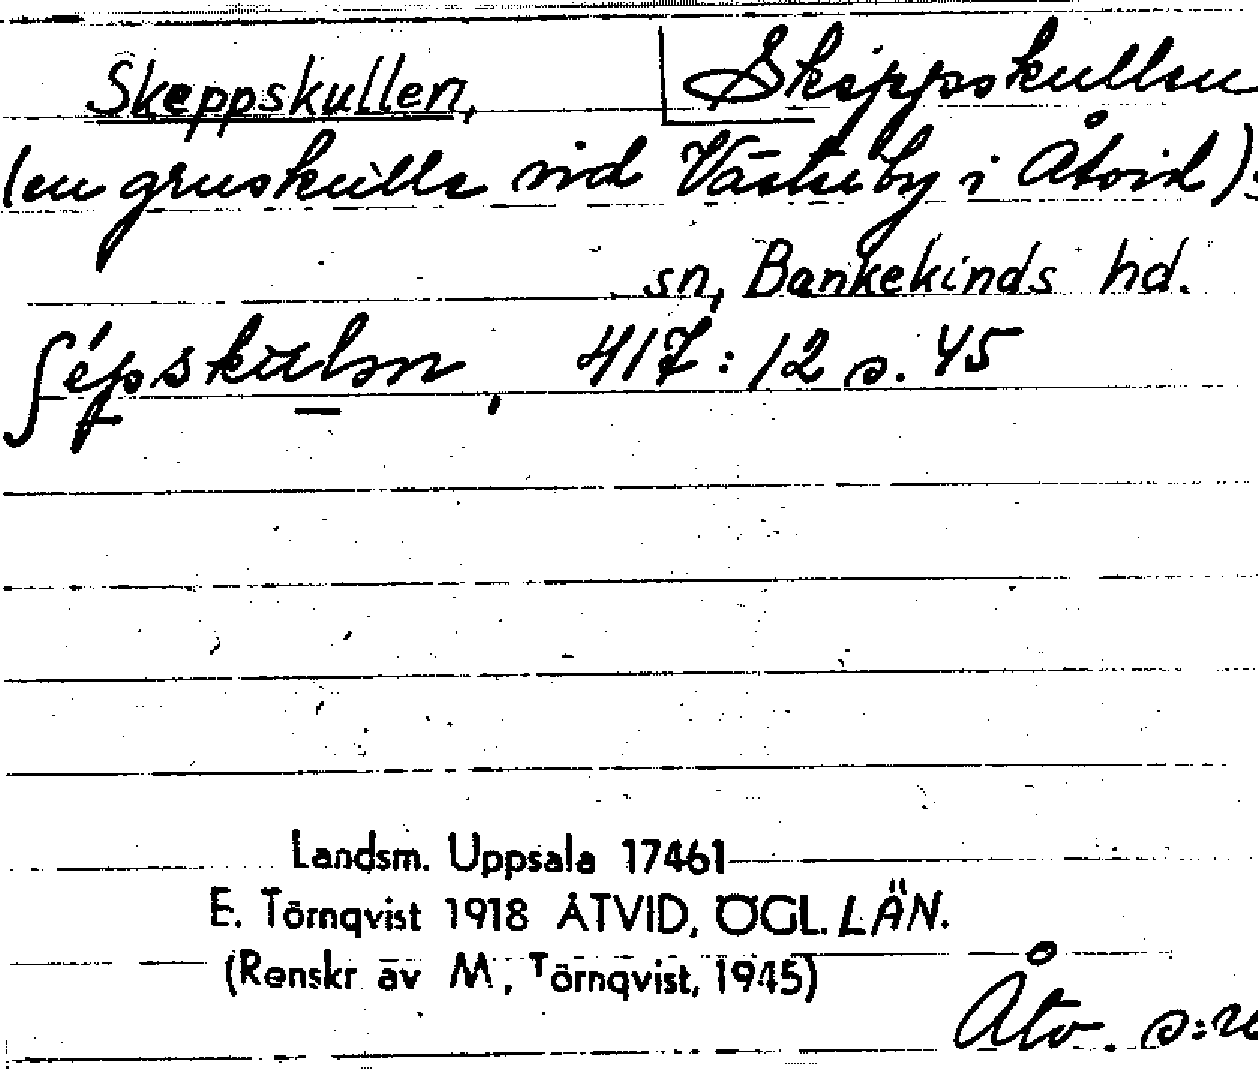 Skeppskullen, Skeppskullen
(en gruskulle vid Västerby i Åtvid):
sn, Bankekinds hd.
417:12 s. 45
Landsm. Uppsala 17461
E. Törnqvist 1918 ÅTVID, ÖGL. LÄN.
(Renskr av M. Törnqvist, 1945)
Åtv.